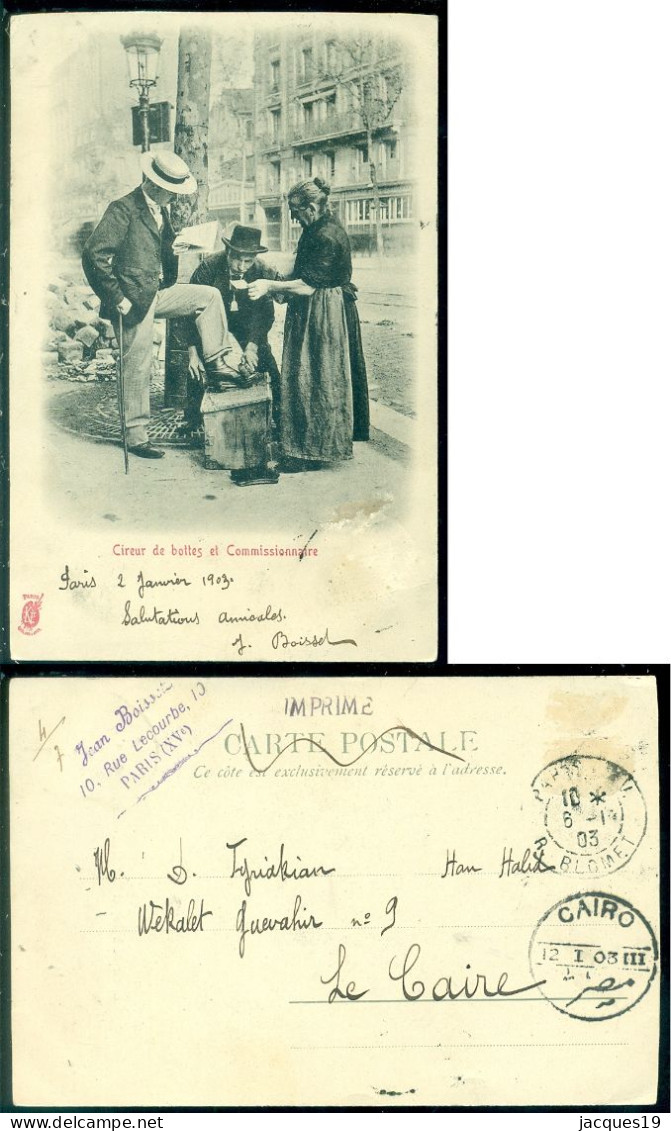 Cireur de bottes et Commissionnaire
Paris 2 Janvier 1903.
Salutations amicales.
J. Boissel
Jean Boissel
10, Rue Lecourbe, 10
PARIS (XVe)
4/7
IMPRIMÉ
CARTE POSTALE
Ce côté est exclusivement réservé à l'adresse.
PARIS XV
10 *
6 -1
03
R. BLOMET
M. D. Tyriakian Han Halil
Wékalet Guevahir nº 9
Le Caire
CAIRO
12 I 03 III
مصر
jacques19